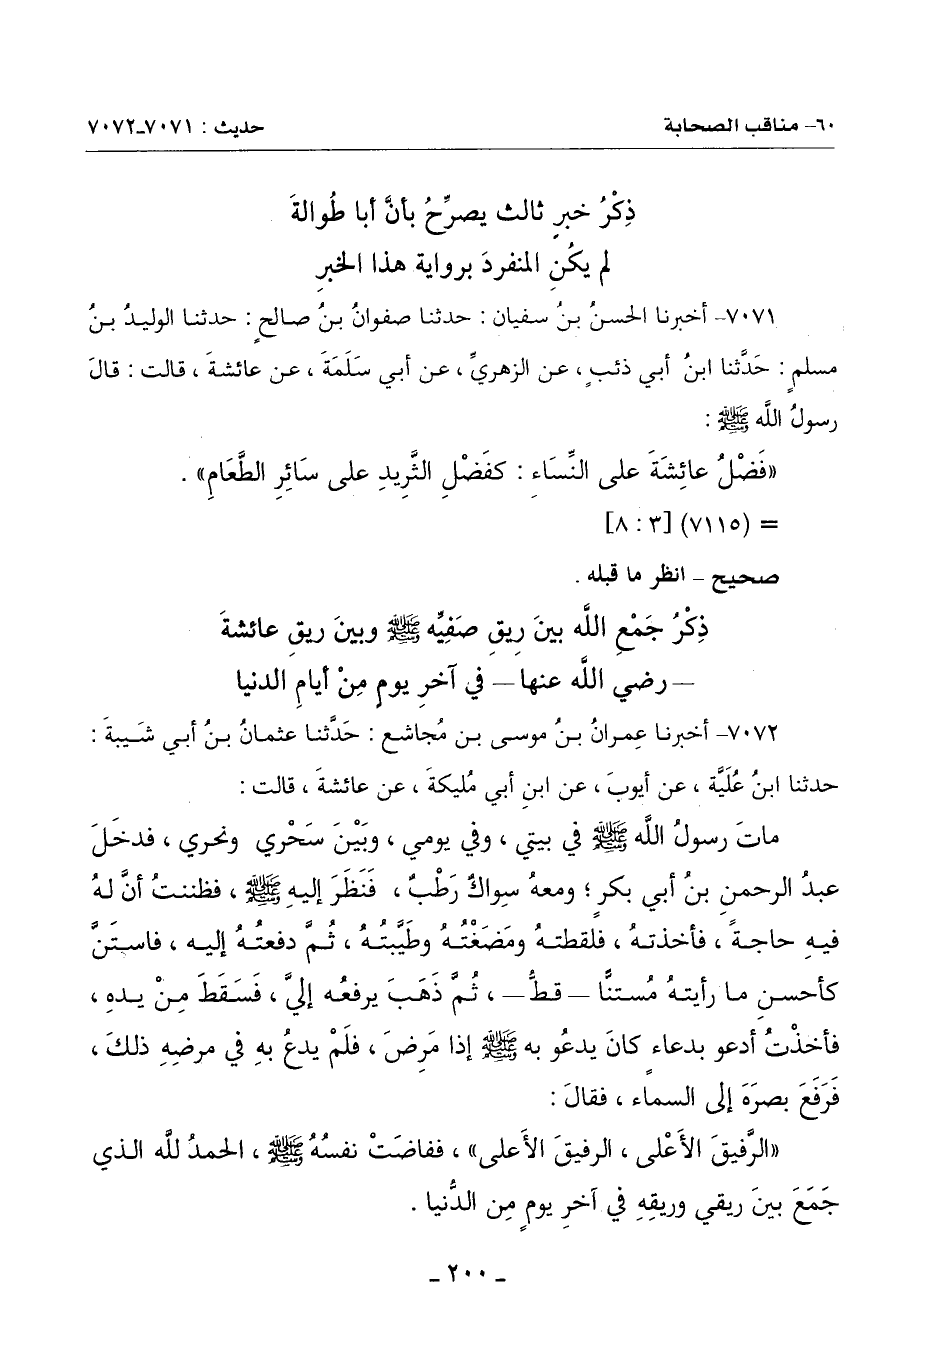 ٦٠- مناقب الصحابة حديث : ٧٠٧١-٧٠٧٢
ذِكْرُ خبرٍ ثالث يصرِّحُ بأنَّ أبا طُوالةَ
لم يكُنِ المنفردَ برواية هذا الخبرِ
٧٠٧١- أخبرنا الحسنُ بنُ سفيان : حدثنا صفوانُ بنُ صالحٍ : حدثنا الوليدُ بنُ
مسلمٍ : حَدَّثنا ابنُ أبي ذئبٍ ، عن الزهريِّ ، عن أبي سَلَمَةَ ، عن عائشةَ ، قالت : قالَ
رسولُ اللَّه ﷺ :
«فَضْلُ عائِشَةَ على النِّسَاءِ : كفَضْلِ الثَّرِيدِ على سَائِرِ الطَّعَامِ» .
= (٧١١٥) [٣ : ٨]
صحيح - انظر ما قبله .
ذِكْرُ جَمْعِ اللَّه بينَ رِيقِ صَفيِّه ﷺ وبينَ رِيقِ عائشةَ
– رضي اللَّه عنها – في آخرِ يومٍ مِنْ أيامِ الدنيا
٧٠٧٢- أخبرنا عِمرانُ بنُ موسى بن مُجاشع : حَدَّثنا عثمانُ بنُ أبي شَيبةَ :
حدثنا ابنُ عُلَيَّة ، عن أيوبَ ، عن ابنِ أبي مُليكةَ ، عن عائشةَ ، قالت :
ماتَ رسولُ اللَّه ﷺ في بيتي ، وفي يومي ، وبَيْنَ سَحْري ونحري ، فدخَلَ
عبدُ الرحمنِ بنُ أبي بكرٍ ؛ ومعهُ سِواكٌ رَطْبٌ ، فَنَظَرَ إليهِ ﷺ ، فظننتُ أنَّ لهُ
فيهِ حاجةً ، فأخذتهُ ، فلقطتهُ ومَضَغْتُهُ وطَيَّبتُهُ ، ثُمَّ دفعتُهُ إليه ، فاستَنَّ
كأحسنِ ما رأيتهُ مُستنًّا – قطُّ – ، ثُمَّ ذَهَبَ يرفعُه إليَّ ، فَسَقَطَ مِنْ يدهِ ،
فأخذْتُ أدعو بدعاء كانَ يدعُو به ﷺ إذا مَرِضَ ، فلَمْ يدعُ بهِ في مرضِهِ ذلكَ ،
فَرَفَعَ بصرَهَ إلى السماء ، فقالَ :
«الرَّفيقَ الأَعْلى ، الرفيقَ الأَعلى» ، ففاضَتْ نفسُهُ ﷺ ، الحمدُ للَّه الذي
جَمَعَ بينَ ريقي وريقِهِ في آخرِ يومٍ مِن الدُّنيا .
- ٢٠٠ -